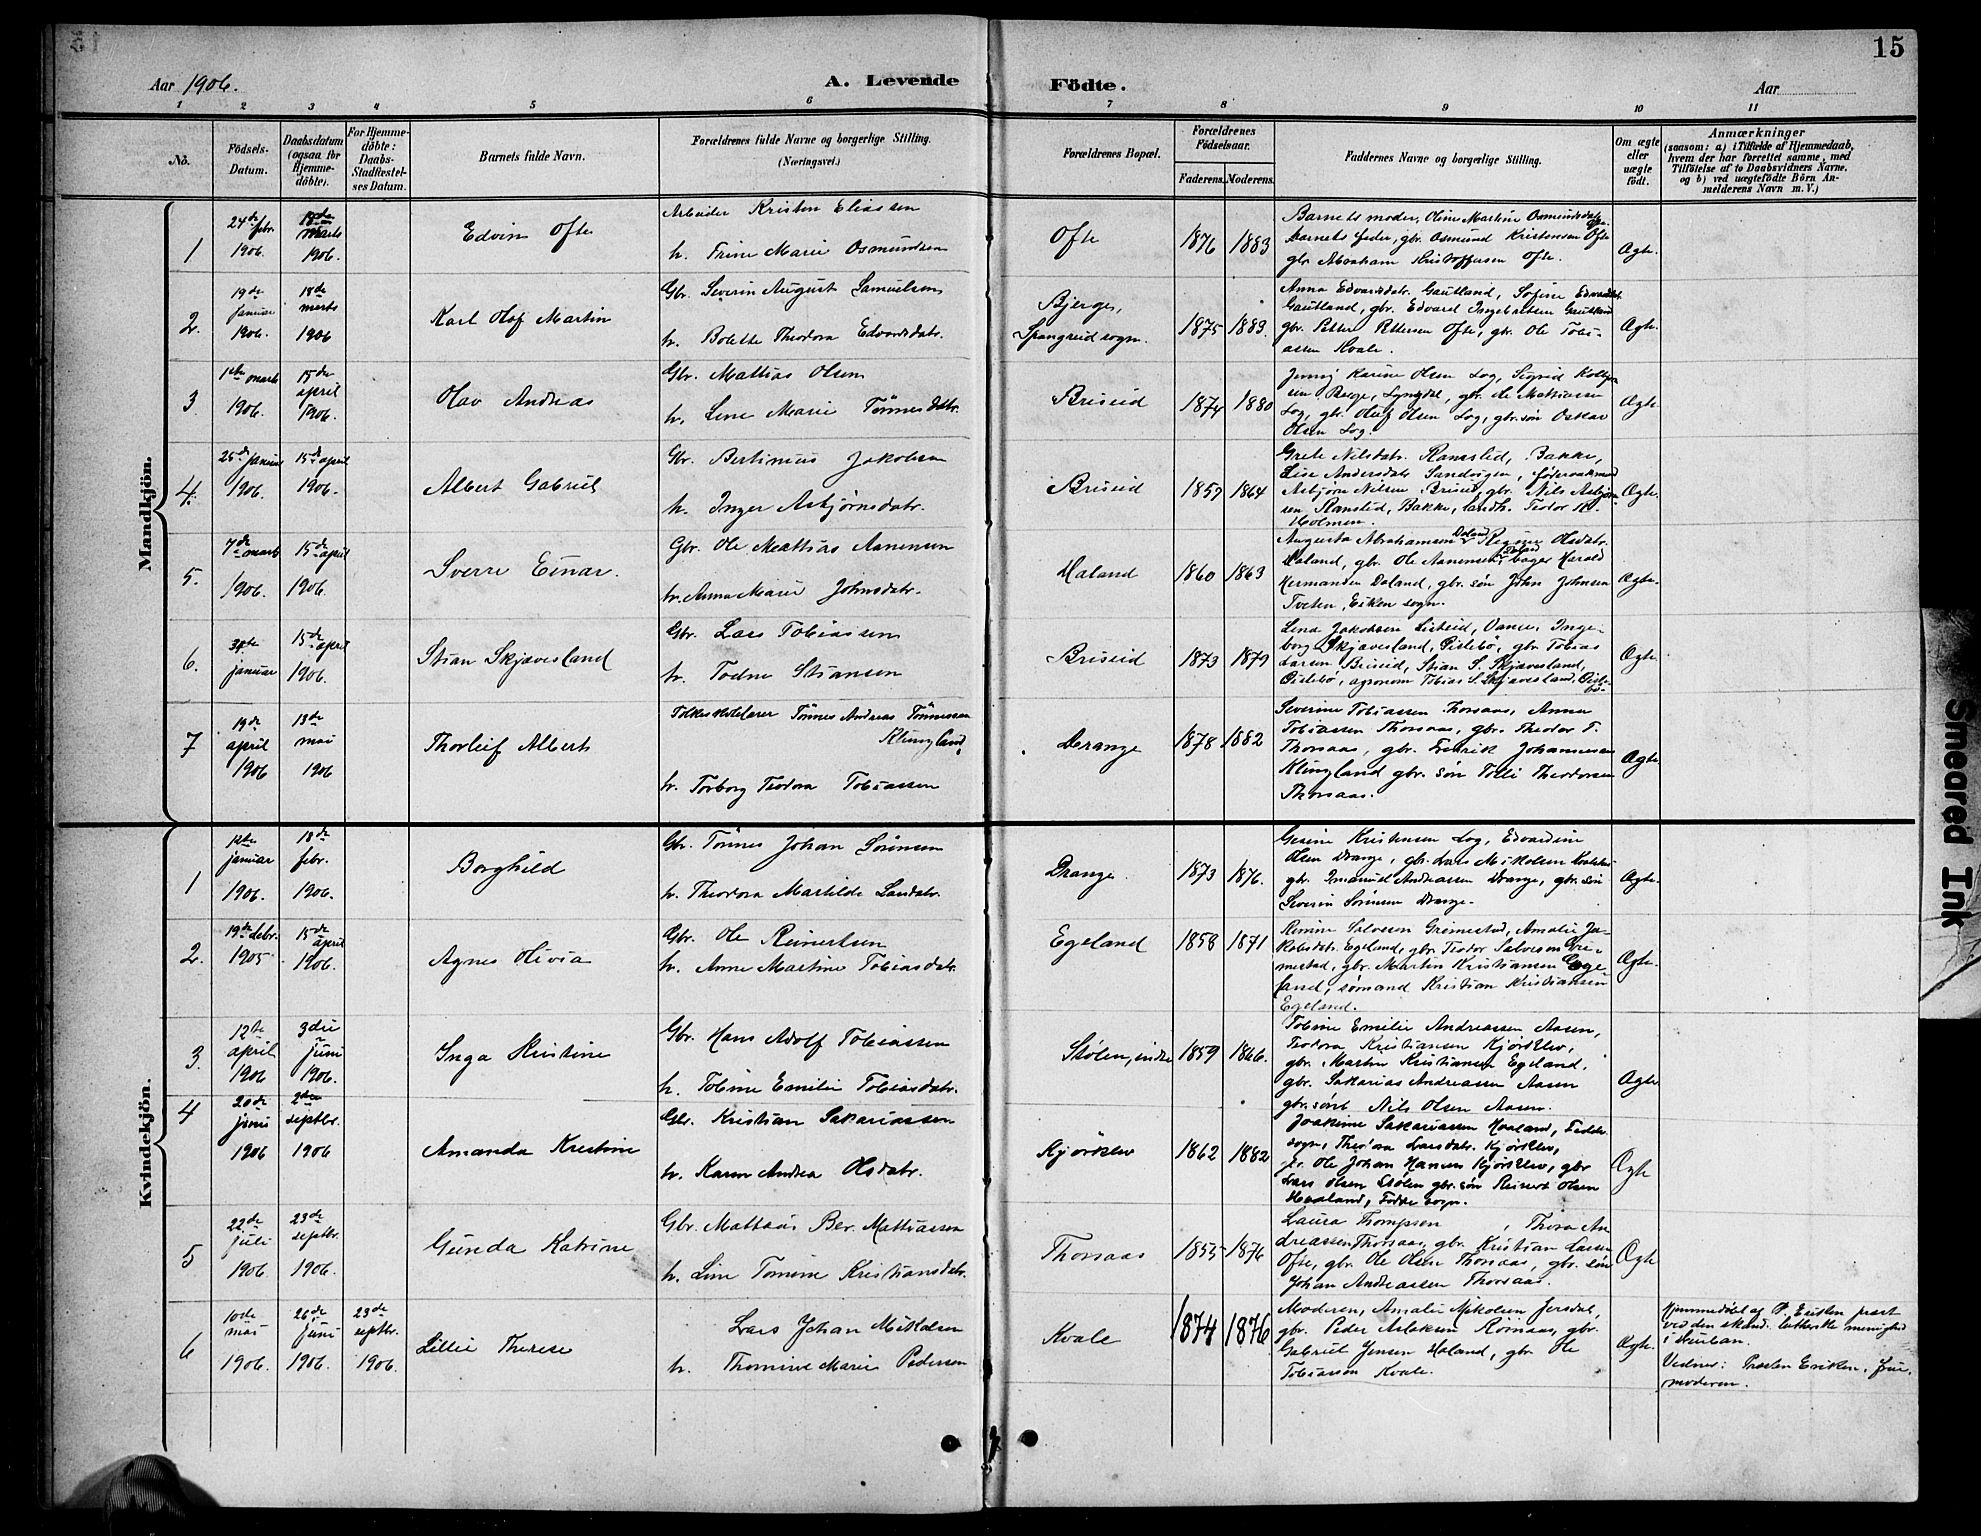 15
Aar 1906.
A. Levende
Födte.
Aar
1 2 3 4 5 6 7 8 9 10 11
No.
Födsels-Datum.
Daabsdatum (ogsaa for Hjemme-döbte).
For Hjemme-döbte: Daabs-Stadfæstel-ses Datum.
Barnets fulde Navn.
Forældrenes fulde Navne og borgerlige Stilling.
(Næringsvei.)
Forældrenes Bopæl.
Forældrenes Födselsaar.
Faderens. Moderens.
Faddernes Navne og borgerlige Stilling.
Om ægte eller uægte födt.
Anmærkninger
(saasom: a) i Tilfælde af Hjemmedaab, hvem der har forrettet samme, med Tilföielse af to Daabsvidners Navne, og b) ved uægtefödte Börn Anmelderens Navn m. V.)
Mandkjön.
1
24de febr. 1906.
18de marts 1906.
Edvin Ofte
Arbeider Kristen Eliassen
h. Trine Marie Osmundsen
Ofte
1876 1883
Barnets moder, Oline Martine Osmundsdatr. Ofte
Barnets fader, gbr. Osmund Kristensen Ofte
gbr. Abraham Kristoffersen Ofte.
Ægte.
2.
19de januar 1906.
18de marts 1906
Karl Olaf Martin
Gbr. Severin August Samuelsen
h. Bolette Theodora Edvardsdatr.
Bjerge, Spangreid sogn.
1875 1883.
Anna Edvardsdatr. Gautland, Sofine Edvardsdatr.
Gautland, gbr. Edvard Ingebretsen Gautland
gbr. Petter Pettersen Ofte, gbr. Ole Tobi-
assen Kvale.
Ægte.
3
1ste marts 1906.
15de april 1906.
Olav Andreas
Gbr. Mattias Olsen
h. Lene Marie Tönnesdatr.
Briseid
1874 1880
Jenny Karine Olsen Log, Sigrid
Berge, Lyngdal, gbr. Ole Mathiassen
Log, gbr. Oluf Olsen Log, gbr. søn Oskar
Olsen Log.
Ægte.
4.
25de januar 1906.
15de april 1906.
Albert Gabriel
Gbr. Bertinius Jakobsen
h. Inger Asbjørnsdatr.
Briseid
1859 1864
Grete Nilsdatr. Ramslid, Bakke,
Lise Andersdatr. Sandvigen,
Asbjørn Nilsen Briseid, gbr. Nils Asbjørn-
sen Ramslid, Bakke, landh. Teodor
Holmen.
Ægte.
5.
7de marts 1906.
15de april 1906.
Sverre Einar.
Gbr. Ole Mattias Aanensen
h. Anna Marie Johnsdatr.
Haland
1860 1863
Augusta Abrahamsen Doland, Regine Olsdatr.
Haland, gbr. Ole Aanensen Doland, bager Harald
Hermansen Doland, gbr. søn John Johnsen
Tveten, Eiken sogn.
Ægte.
6.
januar
15de april 1906.
Stian Skjævesland
Gbr. Lars Tobiassen
h. Todne Stiansen
Briseid
1873 1879
Lena Jakobsen Listeid, Vanse, Inge-
borg Skjævesland, Øislebö, gbr Tobias
Larsen Briseid, Stian S. Skjævesland,
Øislebö, agronom Tobias S. Skjævesland, Øisle-
bö.
Ægte.
7
19de april 1906
13de mai 1906
Thorleif Albert
Folkeskolelærer Tönnes Andreas Tönnessen
Klungland,
h. Torborg Teodora Tobiassen
Drange
1878 1882
Severine Tobiassen Thorsaas, Anna
Tobiassen Thorsaas, gbr. Theodor T.
Thorsaas, gbr. Fredrik Johannessen
Klungland gbr. søn Tolli Theodorsen
Thorsaas.
Ægte
Kvindekjön.
1
12te januar 1906.
18de febr. 1906.
Borghild
Gbr. Tönnes Johan Sörensen
h. Theodora Martilde Larsdatr.
Drange.
1873 1876.
Gesine Kristensen Log, Edvardine
Olsen Drange, gbr. Lars Mikalsen
gbr. Imanuel Andreassen Drange, gbr. søn
Severin Sörensen Drange.
Ægte.
2.
19de debr. 1905
15de april 1906.
Agnes Olivia
Gbr. Ole Reinertsen
h. Anne Martine Tobiasdatr.
Egeland
1858 1871
Salvesen Grimestad, Amalie Ja-
kobsdatr. Egeland, gbr. Teodor Salvesen Gri-
mestad, gbr. Martin Kristiansen Ege-
land, sømand Kristian Kristiansen
Egeland.
Ægte.
3.
12te april 1906
3die juni 1906.
Inga Kristine
Gbr. Hans Adolf Tobiassen
h. Tobine Emilie Tobiasdatr.
Stølen, indre
1859 1866.
Tobine Emilie Andreassen Aasen,
Teodora Kristiansen Kjörklev,
gbr. Martin Kristiansen Egeland,
gbr. Sakarias Andreassen Aasen
gbr. sønt Nils Olsen Aasen.
Ægte
4
20de juni 1906
2den septbr. 1906
Amanda Kristine
Gbr. Kristian Sakariassen
h. Karen Andrea Olsdatr.
Kjörklev
1862 1882
Joakime Sakariassen Haaland, Fedde
sogn, Thea Larsdatr. Kjörklev,
gr. Ole Johan Hansen Kjörklev, gbr
Lars Olsen Stølen gbr. søn Reinert Olsen
Haaland, Fedde sogn.
Ægte
5
22de juli 1906
23de septbr. 1906.
Gunda Katrine
Gbr. Mattias Ber. Mattiassen
h. Line Tomine Kristiansdatr.
Thorsaas
1855 1876
Laura Thompson, Thora An-
dreassen Thorsaas, gbr. Kristian Larsen
Ofte, gbr. Ole Olsen Thorsaas, gbr. søn
Johan Andreassen Thorsaas.
Ægte
6
10de mai 1906.
26de juni 1906.
23de septbr. 1906.
Lillie Therese
Lars Johan Mikalsen
h. Thomine Marie Pedersen
Kvale
1874 1876
Moderen, Amalie Mikalsen Jersdal,
gbr. Peder Aslaksen Rømaas, gbr.
Gabriel Jensen Haland, gbr Ole
Tobiassen Kvale.
Ægte.
Hjemmedøbt af P. Eriksen præst
ved den skand. lutherske menighed
i
Vidner: Præsten Eriksen, frue,
moderen.
Smeared Ink